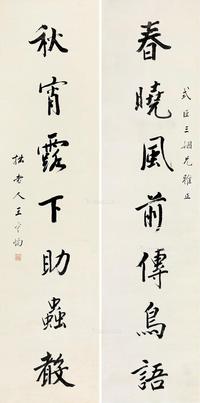 式臣三姻兄雅正
春曉風前傳鳥語
秋宵露下助蟲聲
拙老人王守恂